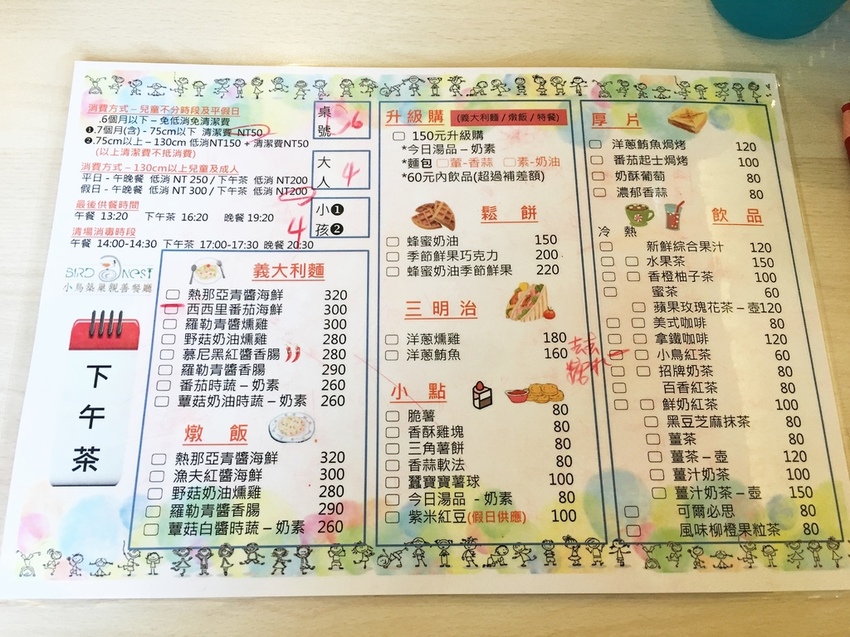 消費方式－兒童不分時段及平假日
.6個月以下－免低消免清潔費
❶.7個月(含) - 75cm以下 清潔費 NT50
❷.75cm以上－130cm 低消NT150 + 清潔費NT50
(以上清潔費不抵消費)
消費方式－130cm以上兒童及成人
平日 - 午晚餐 低消 NT 250 / 下午茶 低消 NT200
假日 - 午晚餐 低消 NT 300 / 下午茶 低消 NT200
最後供餐時間
午餐 13:20 下午茶 16:20 晚餐 19:20
清場消毒時段
午餐 14:00-14:30 下午茶 17:00-17:30 晚餐 20:30
桌號
大人 4
小❶
孩❷
4
BIRD nest
小鳥築巢親善餐廳
下午茶
義大利麵
熱那亞青醬海鮮 320
西西里番茄海鮮 300
羅勒青醬燻雞 300
野菇奶油燻雞 280
慕尼黑紅醬香腸 280
羅勒青醬香腸 290
番茄時蔬－奶素 260
蕈菇奶油時蔬－奶素 260
燉飯
熱那亞青醬海鮮 320
漁夫紅醬海鮮 300
野菇奶油燻雞 280
羅勒青醬香腸 290
蕈菇白醬時蔬－奶素 260
升級購 (義大利麵 / 燉飯 / 特餐)
150元升級購
*今日湯品－奶素
*麵包 葷-香蒜 素-奶油
*60元內飲品(超過補差額)
鬆餅
蜂蜜奶油 150
季節鮮果巧克力 200
蜂蜜奶油季節鮮果 220
三明治
洋蔥燻雞 180
洋蔥鮪魚 160
小點
脆薯 80
香酥雞塊 80
三角薯餅 80
香蒜軟法 80
蠶寶寶薯球 80
今日湯品 - 奶素 80
紫米紅豆(假日供應) 100
厚片
洋蔥鮪魚焗烤 120
番茄起士焗烤 100
奶酥葡萄 80
濃郁香蒜 80
飲品
冷 熱
新鮮綜合果汁 120
水果茶 150
香橙柚子茶 100
蜜茶 60
蘋果玫瑰花茶－壺120
美式咖啡 80
拿鐵咖啡 120
小鳥紅茶 60
招牌奶茶 80
百香紅茶 80
鮮奶紅茶 100
黑豆芝麻抹茶 80
薑茶 80
薑茶－壺 120
薑汁奶茶 100
薑汁奶茶－壺 150
可爾必思 80
風味柳橙果粒茶 80